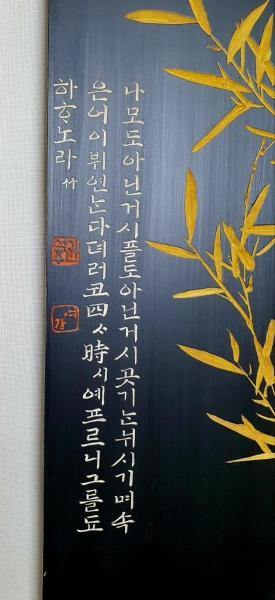 나모도아닌거시플도아닌거시곳기ᄂᆞᆫ뉘시기며속
은어이뷔연ᄂᆞᆫ다뎌러코四ᄉᆞ時시예프르니그를됴
하ᄒᆞ노라 竹
여강